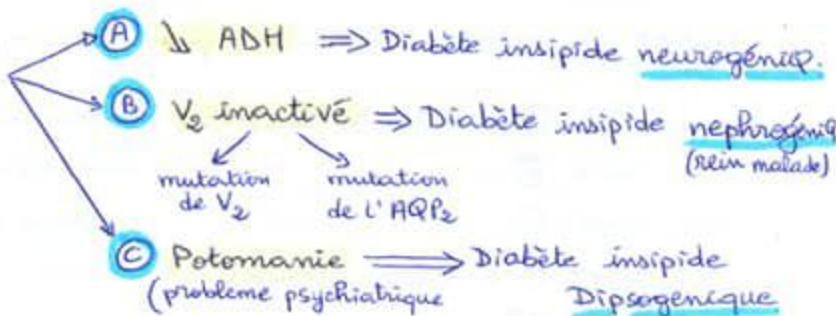 A ↓↓ ADH ⇒ Diabète insipide neurogéniq.
B V₂ inactivé ⇒ Diabète insipide nephrogéniq
(rein malade)
mutation de V₂
mutation de l'AQP₂
C Potomanie ⟹ Diabète insipide
(probleme psychiatrique Dipsogenique